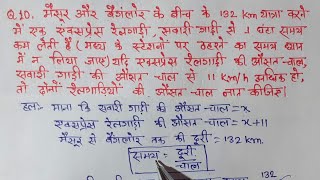 Q.10. मैसूर और बैंगलोर के बीच के 132 km यात्रा करने
में एक एक्सप्रेस रेलगाड़ी, सवारी गाड़ी से 1 घंटा समय
कम लेती है (मध्य के स्टेशनों पर ठहरने का समय ध्यान
में न लिया जाए) यदि एक्सप्रेस रेलगाड़ी की औसत-चाल,
सवारी गाड़ी की औसत चाल से 11 km/h अधिक हो,
तो दोनों रेलगाड़ियों की औसत चाल ज्ञात कीजिए।
हल:- माना कि सवारी गाड़ी की औसत-चाल = x
एक्सप्रेस रेलगाड़ी की औसत-चाल = x+11
मैसूर से बैंगलोर तक की दूरी = 132 km.
समय = दूरी
चाल
132